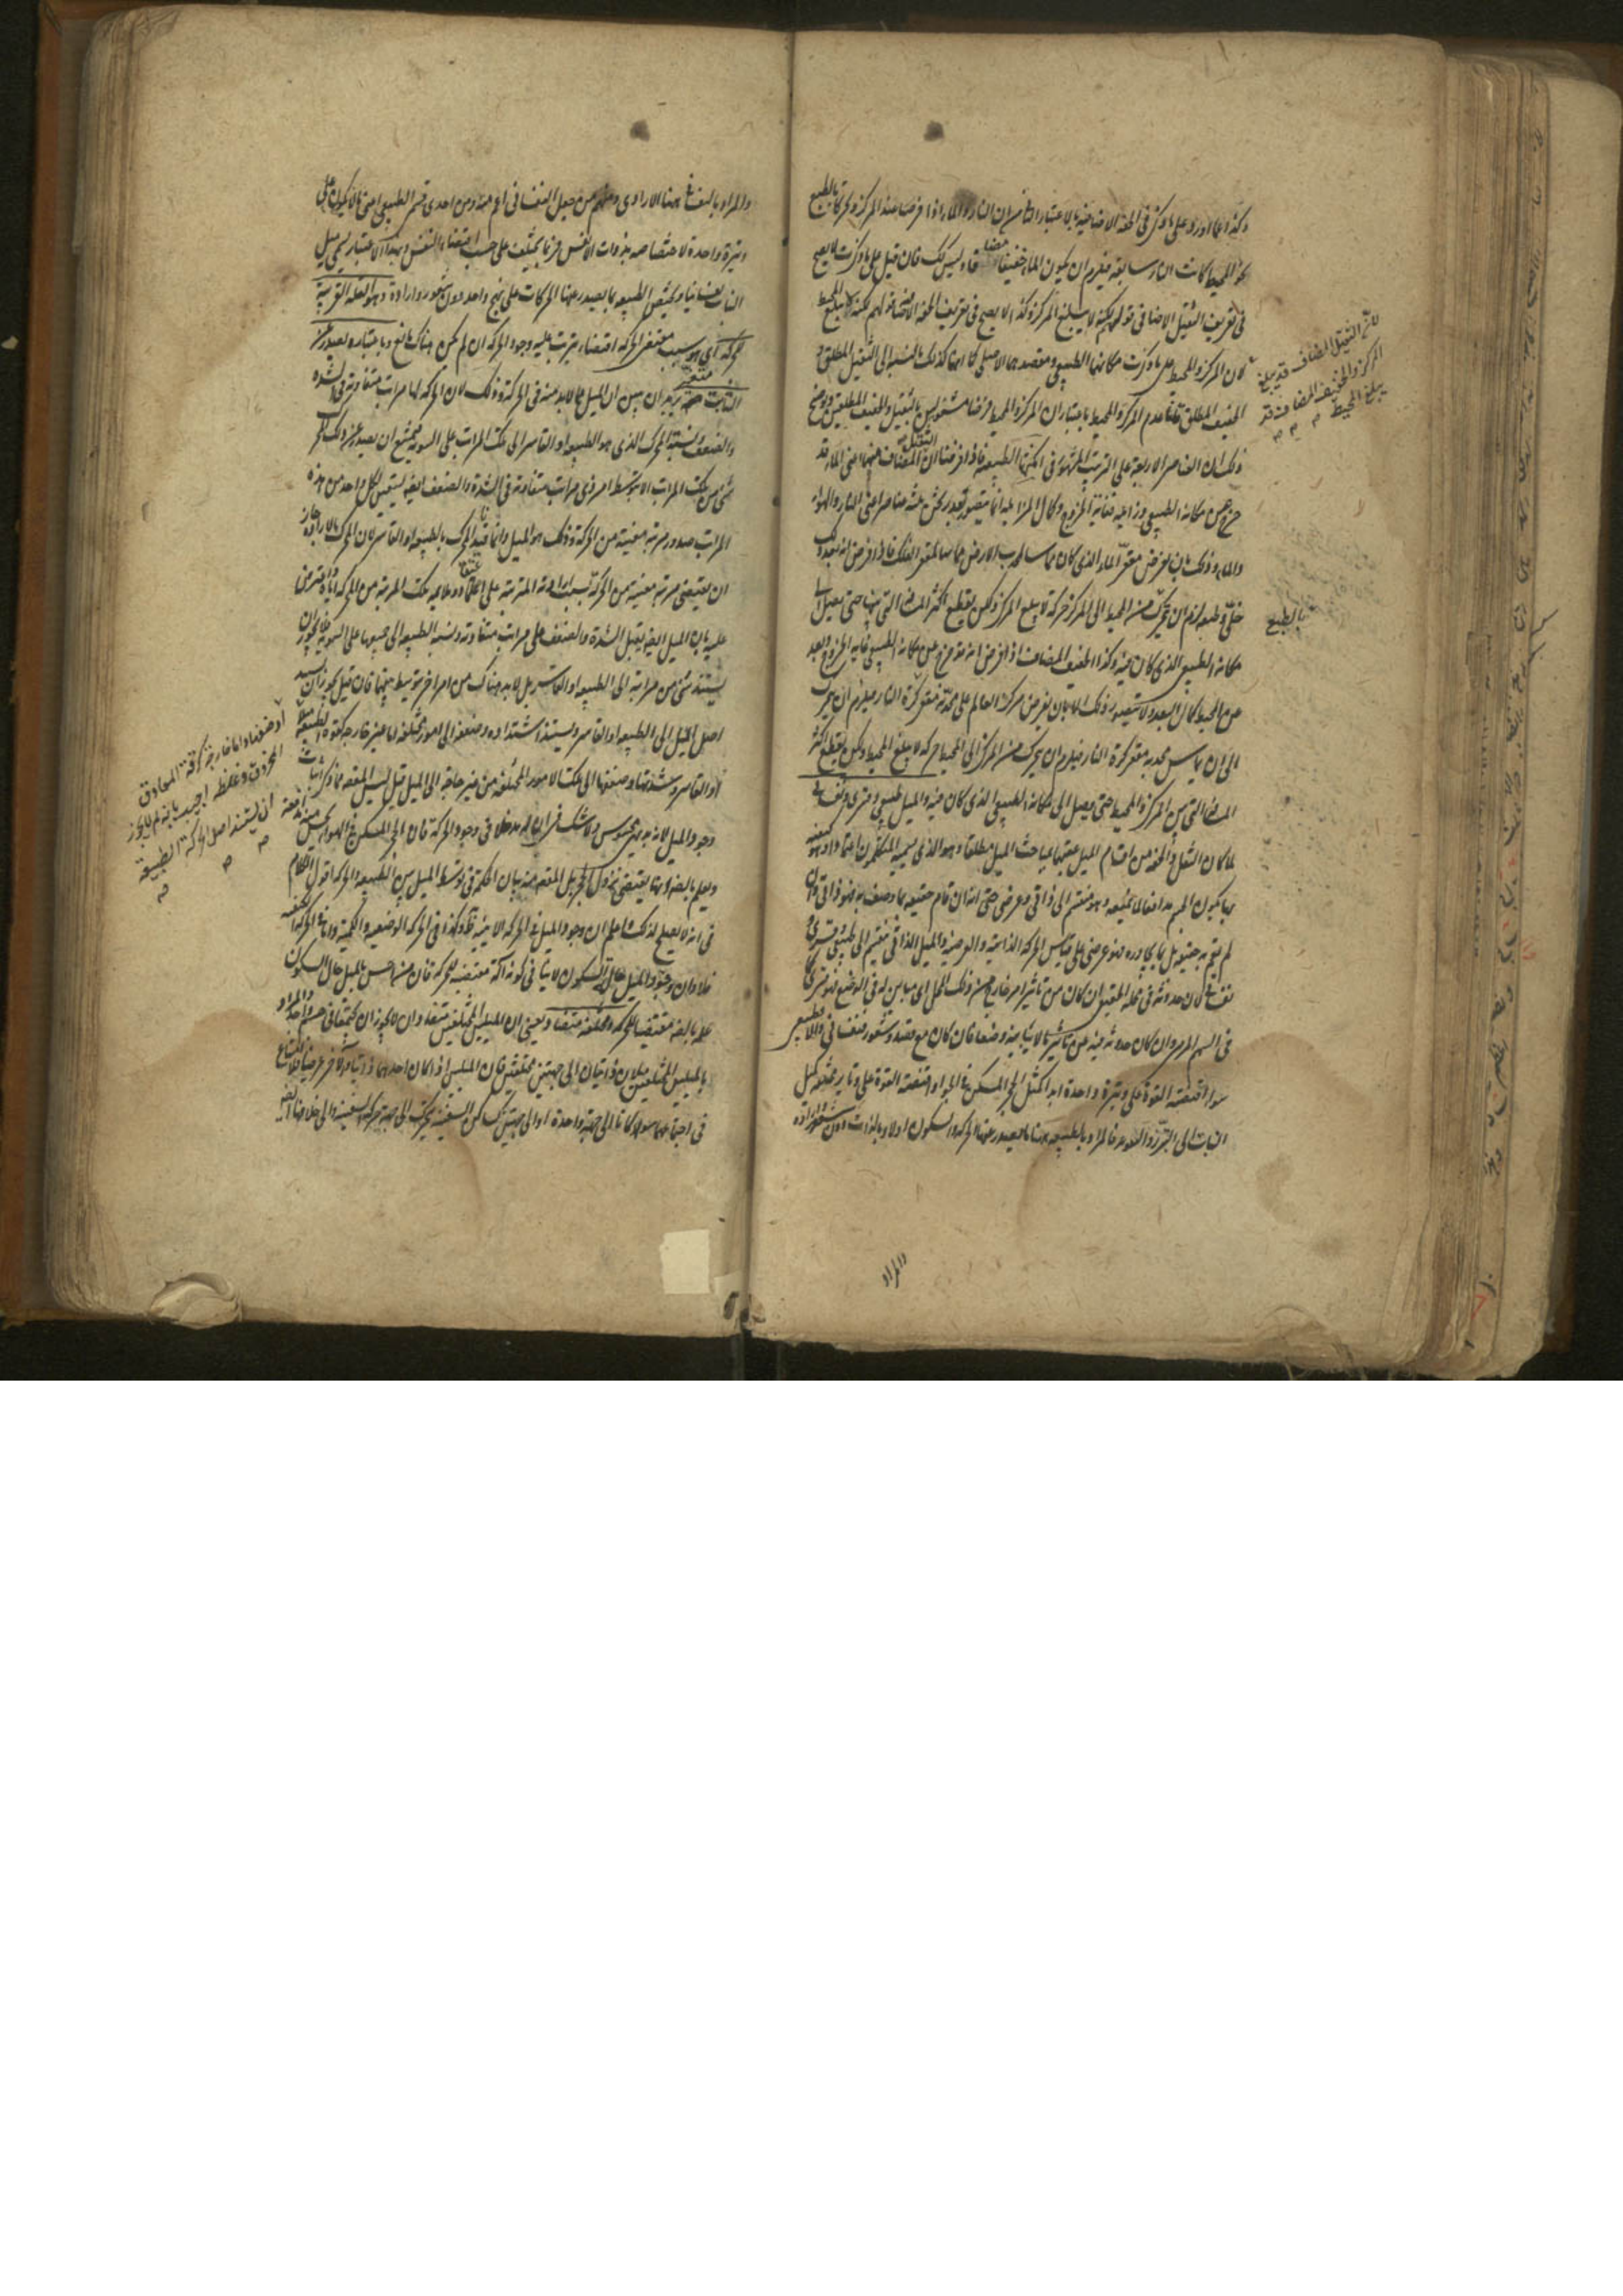 وكذا عما اورد على ما ذكر في الخفة الاضافية بالاعتبار الثاني من ان النار والماء اذا فرضا عند المركز وتحركا بالطبع
نحو المحيط كانت النار سابقة فيلزم ان يكون الماء خفيفا مضافا وليس كذلك فان قيل على ما ذكرت لا يصح
في تعريف الثقيل الاضافي قولهم لكنه لا يبلغ المركز وكذا لا يصح في تعريف الخفة الاضافية قولهم لكنه لا يبلغ المحيط
لان المركز والمحيط على ما ذكرت مكانهما الطبيعي ومقصدهما الاصلي كما انهما كذلك بالنسبة الى الثقيل المطلق و
الخفيف المطلق قلنا عدم المركز والمحيط باعتبار ان المركز والمحيط فرضا مشغولين بالثقيل والخفيف المطلقين وتوضيح
ذلك ان العناصر الاربعة على الترتيب المشهور في امكنتها الطبيعية فاذا فرضنا ان الثقيل المضاف منهما اعني الماء قد
خرج عن مكانه الطبيعي وزايله غاية الخروج وكمال المزايلة انما يتصور بقدر ثخن ثلثة عناصر اعني النار والهواء
والماء وذلك بان نفرض مقعر الماء الذي كان مماسا لمحدب الارض مماسا لمقعر الفلك فاذا فرض انه بعد ذلك
خلي وطبعه لزم ان يتحرك من المحيط الى المركز حركة لا يبلغ المركز ولكن يقطع اكثر المسافة التي بينهما حتى يصل الى
مكانه الطبيعي الذي كان فيه وكذا الخفيف المضاف اذا فرض انه قد خرج عن مكانه الطبيعي غاية الخروج وبعد
عن المحيط كمال البعد ولا يتصور ذلك الا بان نفرض مركز العالم على محدبه مقعر كرة النار فيلزم ان يتحرك
الى ان يماس محدبه مقعر كرة النار فيلزم ان يتحرك من المركز الى المحيط حركة لا يبلغ المحيط ولكن يقطع اكثر
المسافة التي بين المركز والمحيط حتى يصل الى مكانه الطبيعي الذي كان فيه والميل طبيعي وقسري ونفساني
لما كان الثقل والخفة من اقسام الميل عقبهما بمباحث الميل مطلقا وهو الذي يسميه المتكلمون اعتمادا وهو كيفية
بها يكون الجسم مدافعا لما يمنعه وهو منقسم الى ذاتي وعرضي حتى انه ان قام حقيقة بما وصف به فهو ذاتي وان
لم يقم به حقيقة بل بما يجاوره فهو عرضي على قياس الحركة الذاتية والعرضية والميل الذاتي ينقسم الى طبيعي وقسري و
نفساني لان حدوثه في محله الحقيقي ان كان من تاثير امر خارج عن ذلك المحل اي مباين له في الوضع فهو قسري كما
في السهم المرمي وان كان حدوثه فيه عن تاثير ما لا يباينه وضعا فان كان مع قصد وشعور فنفساني والا فطبيعي
سواء اقتضته القوة على وتيرة واحدة ابدا كميل الحجر المسكن في الجو او اقتضته القوة على وتاير مختلفة كميل
النبات الى التبرز والنمو فالمراد بالطبيعة ههنا ما يصدر عنها الحركة والسكون اولا وبالذات دون شعور وارادة
والمراد
لان الثقيل المضاف قد يبلغ
المركز والخفيف المضاف قد
يبلغ المحيط
بالطبع
والمراد بالنفساني ههنا الارادي ومنهم من جعل النفساني اعم منه ومن احدى قسم الطبيعي اعني ما لا يكون على
وتيرة واحدة لاختصاصه بذوات الانفس فربما يختلف على حسب اقتضاء النفس وبهذا الاعتبار يسمى ميل
النبات نفسانيا ويختص الطبيعة بما يصدر عنها الحركات على نهج واحد دون شعور وارادة وهو العلة القريبة
للحركة اي هو سبب مقتضي الحركة اقتضاء يترتب عليه وجود الحركة ان لم يكن هناك مانع وباعتباره يصدر عن
الثابت متغير يريد ان يبين ان الميل مما لابد منه في الحركة وذلك لان الحركة لها مراتب متفاوتة في الشدة
والضعف ونسبة المحرك الذي هو الطبيعة او القاسر الى تلك المراتب على السوية فيمتنع ان يصدر عن ذلك المحرك
شيء من تلك المراتب الا بتوسط امر ذي مراتب متفاوتة في الشدة والضعف ايضا ليتعين لكل واحد من هذه
المراتب صدور مرتبة معينة من الحركة وذلك هو الميل وانما قيد المحرك بالطبيعة او القاسر لان المحرك بالارادة جاز
ان يقتضي مرتبة معينة من الحركة بسبب ارادته المترتبة على اعتقاد ملايمة تلك المرتبة من الحركة اياه واعترض
عليه بان الميل ايضا يقبل الشدة والضعف على مراتب متفاوتة ونسبة الطبيعة الى جميعها على السوية فلا يجوز ان
يستند شيء من مراتبه الى الطبيعة او القاسر بل لابد هناك من امر اخر يتوسط بينهما فان قيل يجوز ان يستند
اصل الميل الى الطبيعة او القاسر ويستند اشتداده وضعفه الى امور مختلفة اما غير خارجة كقوة الطبيعة مثلا
او القاسر وشدتها وضعفها الى تلك الامور المختلفة من غير حاجة الى الميل قيل ليس المقصود مما ذكر اثبات
وجود الميل لانه بديهي محسوس ولا شك في ان له مدخلا في وجود الحركة فان الحجر المسكن في الهواء يحس منه مدافعة
ويعلم بالضرورة انها يقتضي نزول الحجر بل المقصود منه بيان الحكمة في توسط الميل بين الطبيعة والحركة اقول الكلام
في انه لا يصلح لذلك اعلم ان وجود الميل في الحركة الاينية ظ وكذا في الحركة الوضعية والكمية واما في الحركة الكيفية
فلا وان وجود الميل حال السكون لا ينافي كونه آلة مقتضية للحركة فان من احس بالميل حال السكون
علم بالضرورة مقتضيا للحركة ومختلفة متضاد يعني ان الميلين المختلفين متضادان لا يجوز ان يجتمعا في جسم واحد والمراد
بالميلين المختلفين ميلان ذاتيان الى جهتين مختلفتين فان الميلين اذا كان احدهما ذاتيا والاخر عرضيا فلا امتناع
في اجتماعهما سواء كانا الى جهة واحدة او الى جهتين كساكن السفينة يتحرك الى جهة حركة السفينة والى خلافها ايضا
او ضعفها واما خارجة كرقة المعاوق
المخروق وغلظه اجيب بانه لم لا يجوز
ان يستند اصل الحركة الى الطبيعة